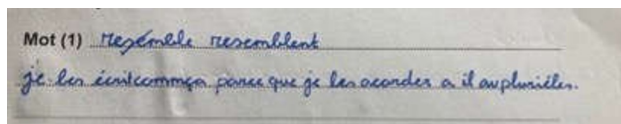 Mot (1) resemble resemblent
je les écritcommça parce que je les acordes a il au pluriéles.